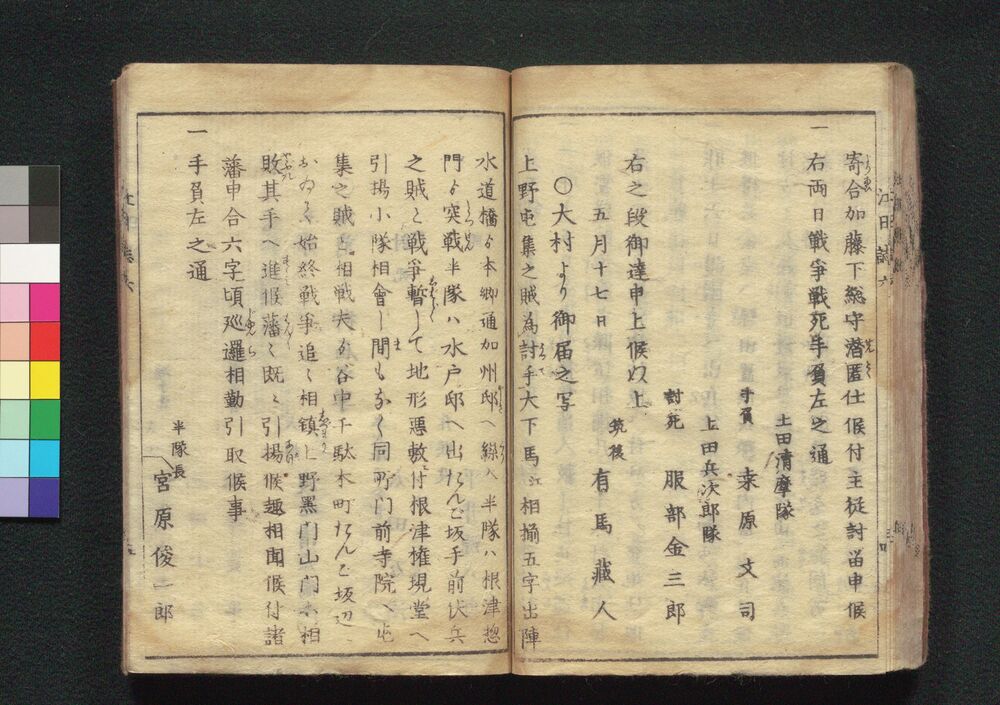 寄合加藤下総守潜匿仕候付主従討留申候
一
右両日戦争戦死手負左之通
土田清摩隊
手負 桒原文司
上田兵次郎隊
討死 服部金三郎
右之段御達申上候以上
筑後 有馬蔵人
五月十七日
〇大村より御届之写
上野屯集之賊為討手大下馬江相揃五字出陣
水道橋ゟ本郷通加州邸へ繰入半隊ハ根津惣
門ゟ突戦半隊ハ水戸邸へ出だんご坂手前伏兵
之賊と戦争暫して地形悪敷付根津権現堂へ
引揚小隊相會し間もなく同所門前寺院へ屯
集之賊と相戦夫ゟ谷中千駄木町だんご坂辺
おゐて始終戦争追々相鎮上野黒門山門等相
敗其手へ進候藩々既に引揚候趣相聞候付諸
藩申合六字頃巡邏相勤引取候事
一
手負左之通
半隊長 宮原俊一郎